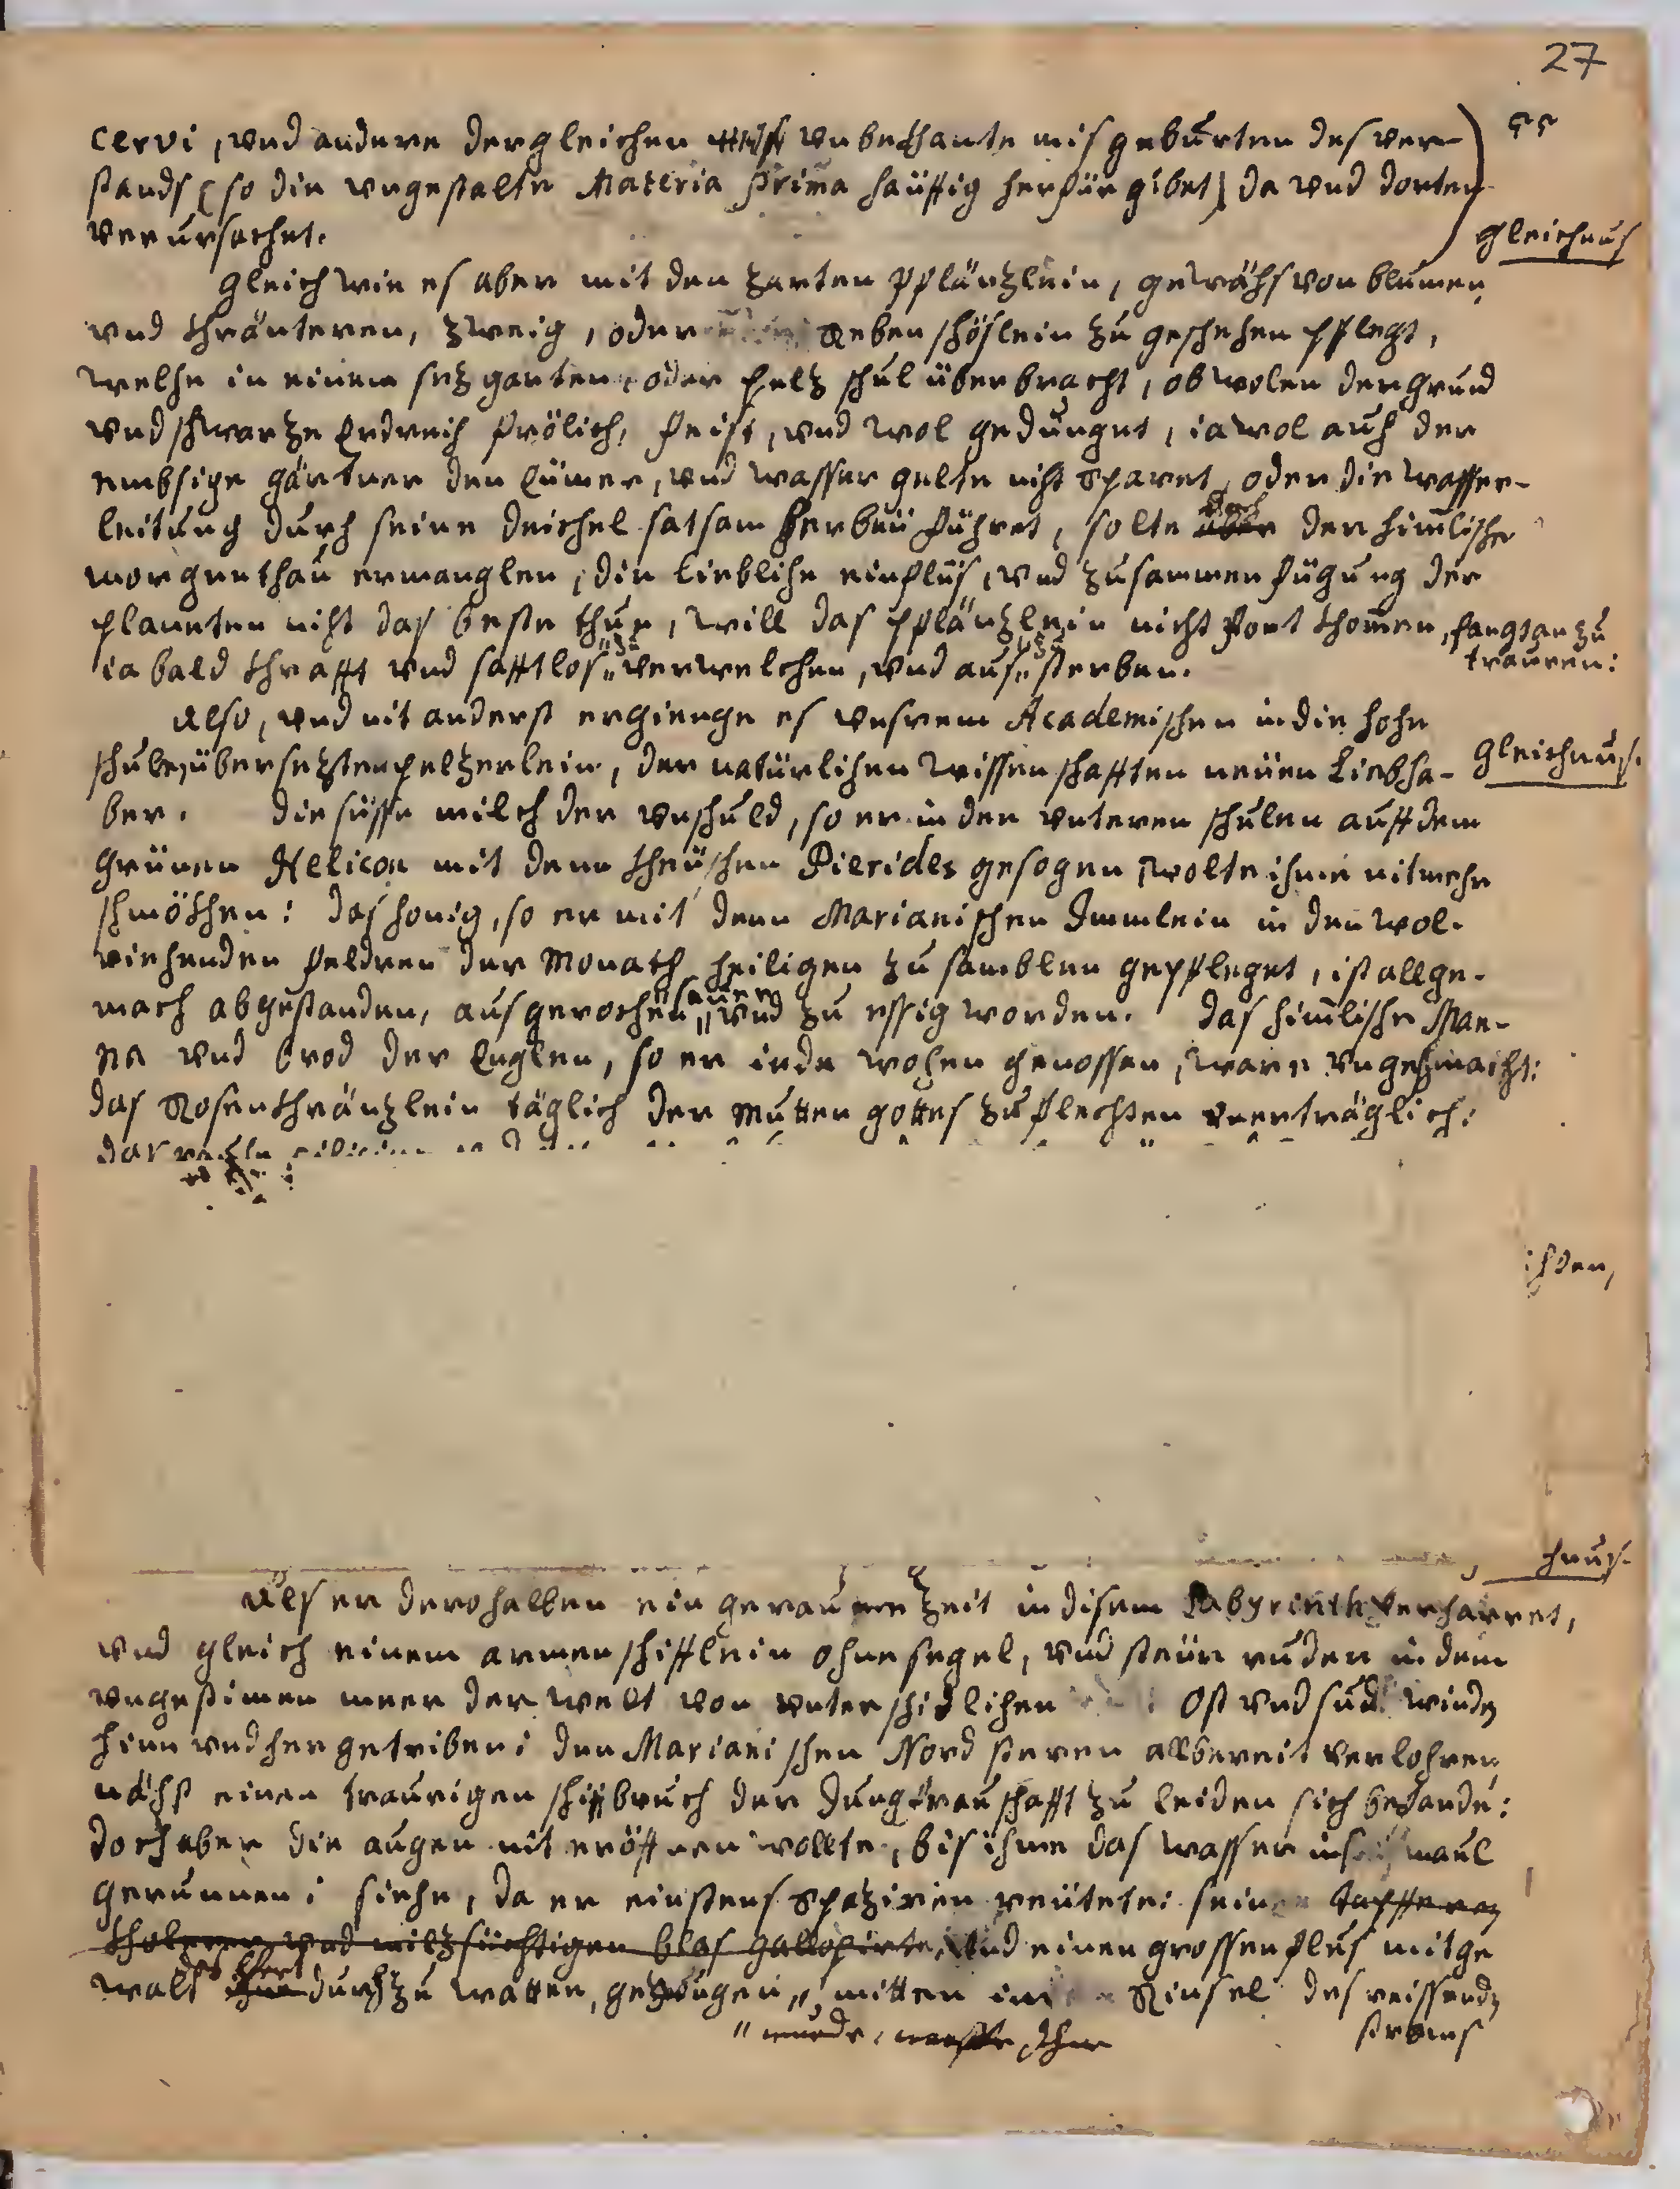 27
cervi, vnd andere dergleichen vnbekhante misgebürten des ver-
stands (so die vngestalte Materia prima häuffig herfür gibet) da vnd dorten
verursachet.
gleichnus
Gleich wie es aber mit den zarten pflänzlein, gewächs von blumen,
vnd khräuteren, zweig, oder Rebenschöslein zu geschehen pflegt,
welche in einem sezgarten, oder pelzschul überbracht, obwolen der grund
vnd schwarze Erdreich frölich, feist, vnd wol gedunget, ia wol auch der
embsige gärtner den Eümer, vnd wasser gelte nicht sparet, oder die wasser-
leitung durch seine deichel satsam herbeü führet, solte aber der himlische
morgenthau ermanglen, die liebliche einflüs, vnd zusammenfügung der
planeten nicht das beste thue, will das pflänzlein nicht fort khomen, fangt an zu
trauren:
ia bald khrafft vnd safftlos zu verwelchen, vnd aus zu sterben.
Also, vnd nit anderst ergienge es vnsrem Academischen in die hohe
schule übersezten pelzerlein, der natürlichen wissenschafften neüen Liebha-
gleichnus.
ber. die süsse milch der vnschuld, so er in den vnteren schulen auff dem
grünen Helicon mit denn kheüschen Pierides gesogen, wolte ihme nit mehr
schmökhen: das honig, so er mit denn Marianischen Immlein in den wol-
riechenden feldren der Monath heiligen zu samblen gepfleget, ist allge-
mach abgestanden, ausgerochen, sauer vnd zu essig worden. das himlische Man-
na vnd brod der Englen, so er iede wochen genossen, ware vngeschmacht:
das Rosenkhränzlein täglich der Mutter gottes zu flechten vnerträglich:
chnus.
Als er derohalben ein geraume Zeit in disem Labyrinth verharret,
vnd gleich einem armen schifflein ohne segel, vnd steürruder in dem
vngestimen meer der welt von vnterschidlichen Ost vnd sud winden
hinn vnd her getriben: den Marianischen Nord steren allbereit verlohren
nächst einen traurigen schiffbruch der Jungfrauschafft zu leiden sich befande:
doch aber die augen nit eröffnen wollte, bis ihme das wasser ins maul
gerunnen: siehe, da er einstens spaziren reütete: seinen dapfferen
kholeren vnd milzsüchtigen blas gallopirte, vnd einen grossen flus mit ge
walt durch zu watten, gezwungen, mitten in Rinsel des reissenden
" wurde,
stroms